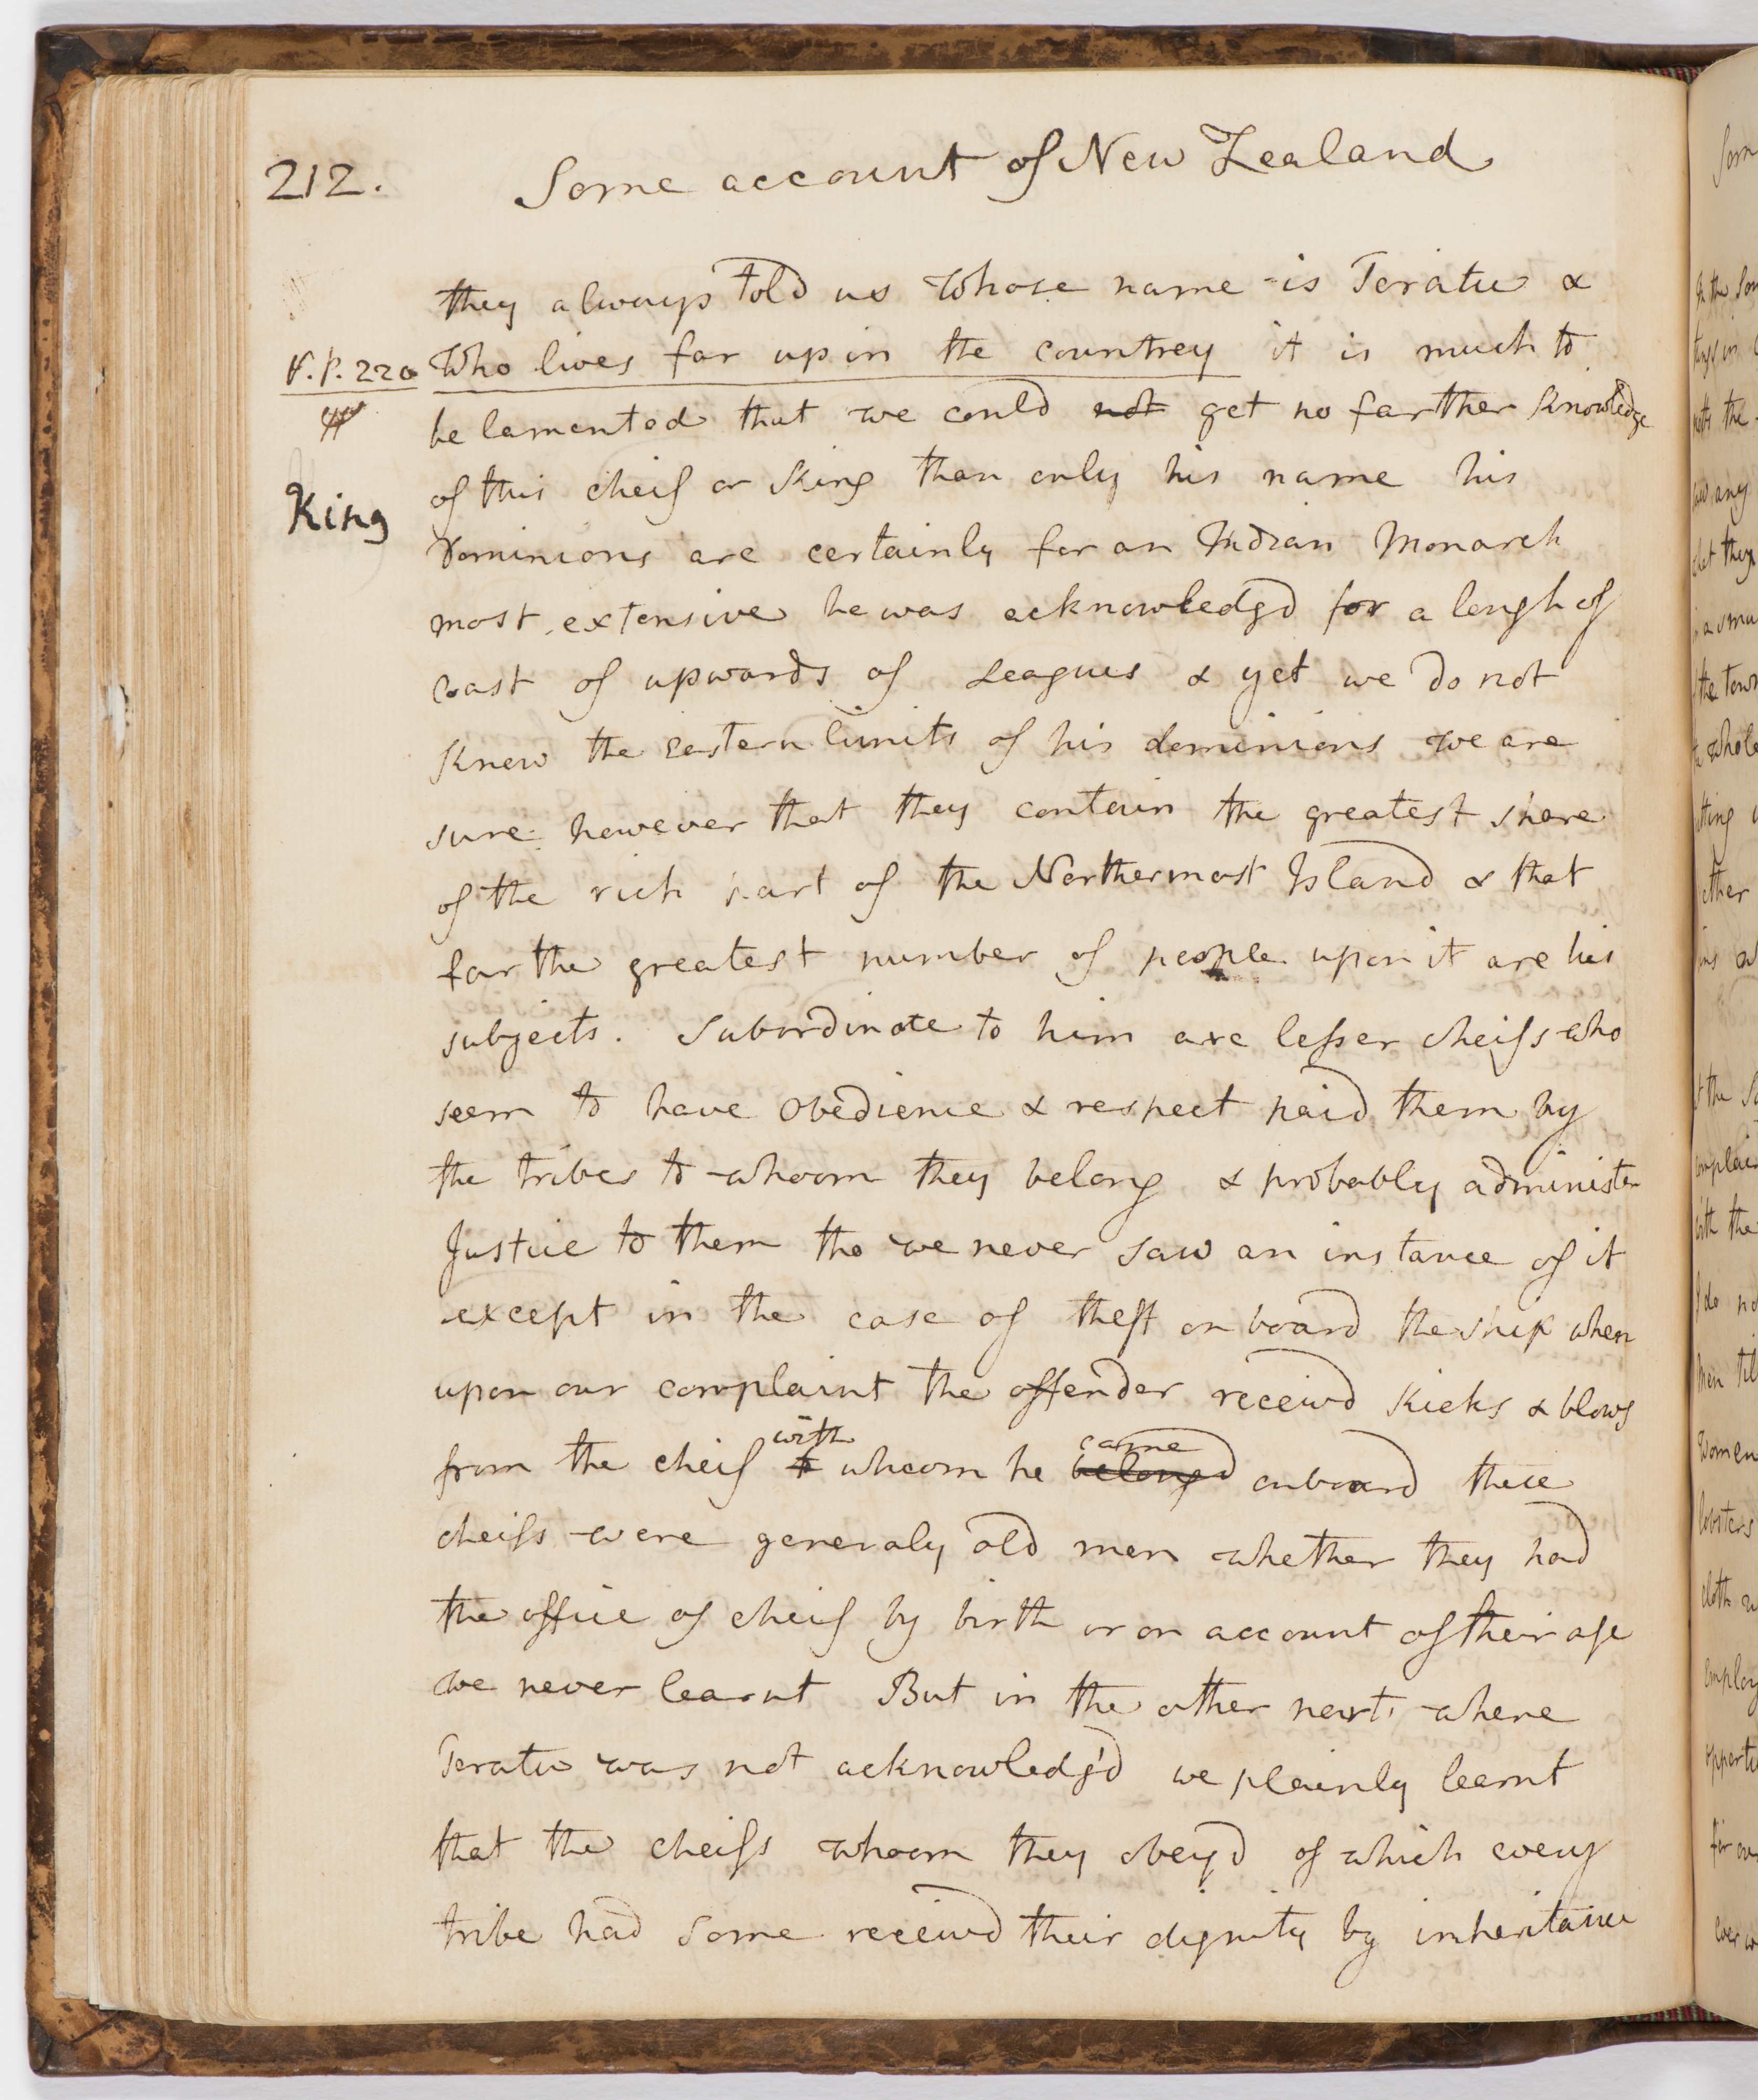 212.
Some account of New Zealand
they always told us whose name is Teratu &
V.P. 220
Who lives far up in the countrey it is much to
be lamented that we could not get no farther Knowledge
of this cheif or King than only his name his
King
Dominions are certainly for an Indian Monarch
most extensive he was acknowledgd for a lengh of
coast of upwards of Leagues & yet we do not
Know the eastern limits of his dominions we are
sure however that they contain the greatest share
of the rich part of the Northermost Island & that
far the greatest number of people upon it are his
subjects. Subordinate to him are lesser cheifs who
seem to have obedience & respect paid them by
the tribes to whoom they belong & probably administer
Justice to them tho we never saw an instance of it
except in the case of theft on board the ship when
upon our complaint the offender receivd Kicks & blows
from the cheif to with whoom he belongd came onboard these
cheifs were generaly old men whether they had
the office of cheif by birth or on account of their age
we never learnt But in the other part where
Teratu was not acknowledg'd we plainly learnt
that the cheifs whoom they obey'd of which every
tribe had some receivd their dignity by inheritance